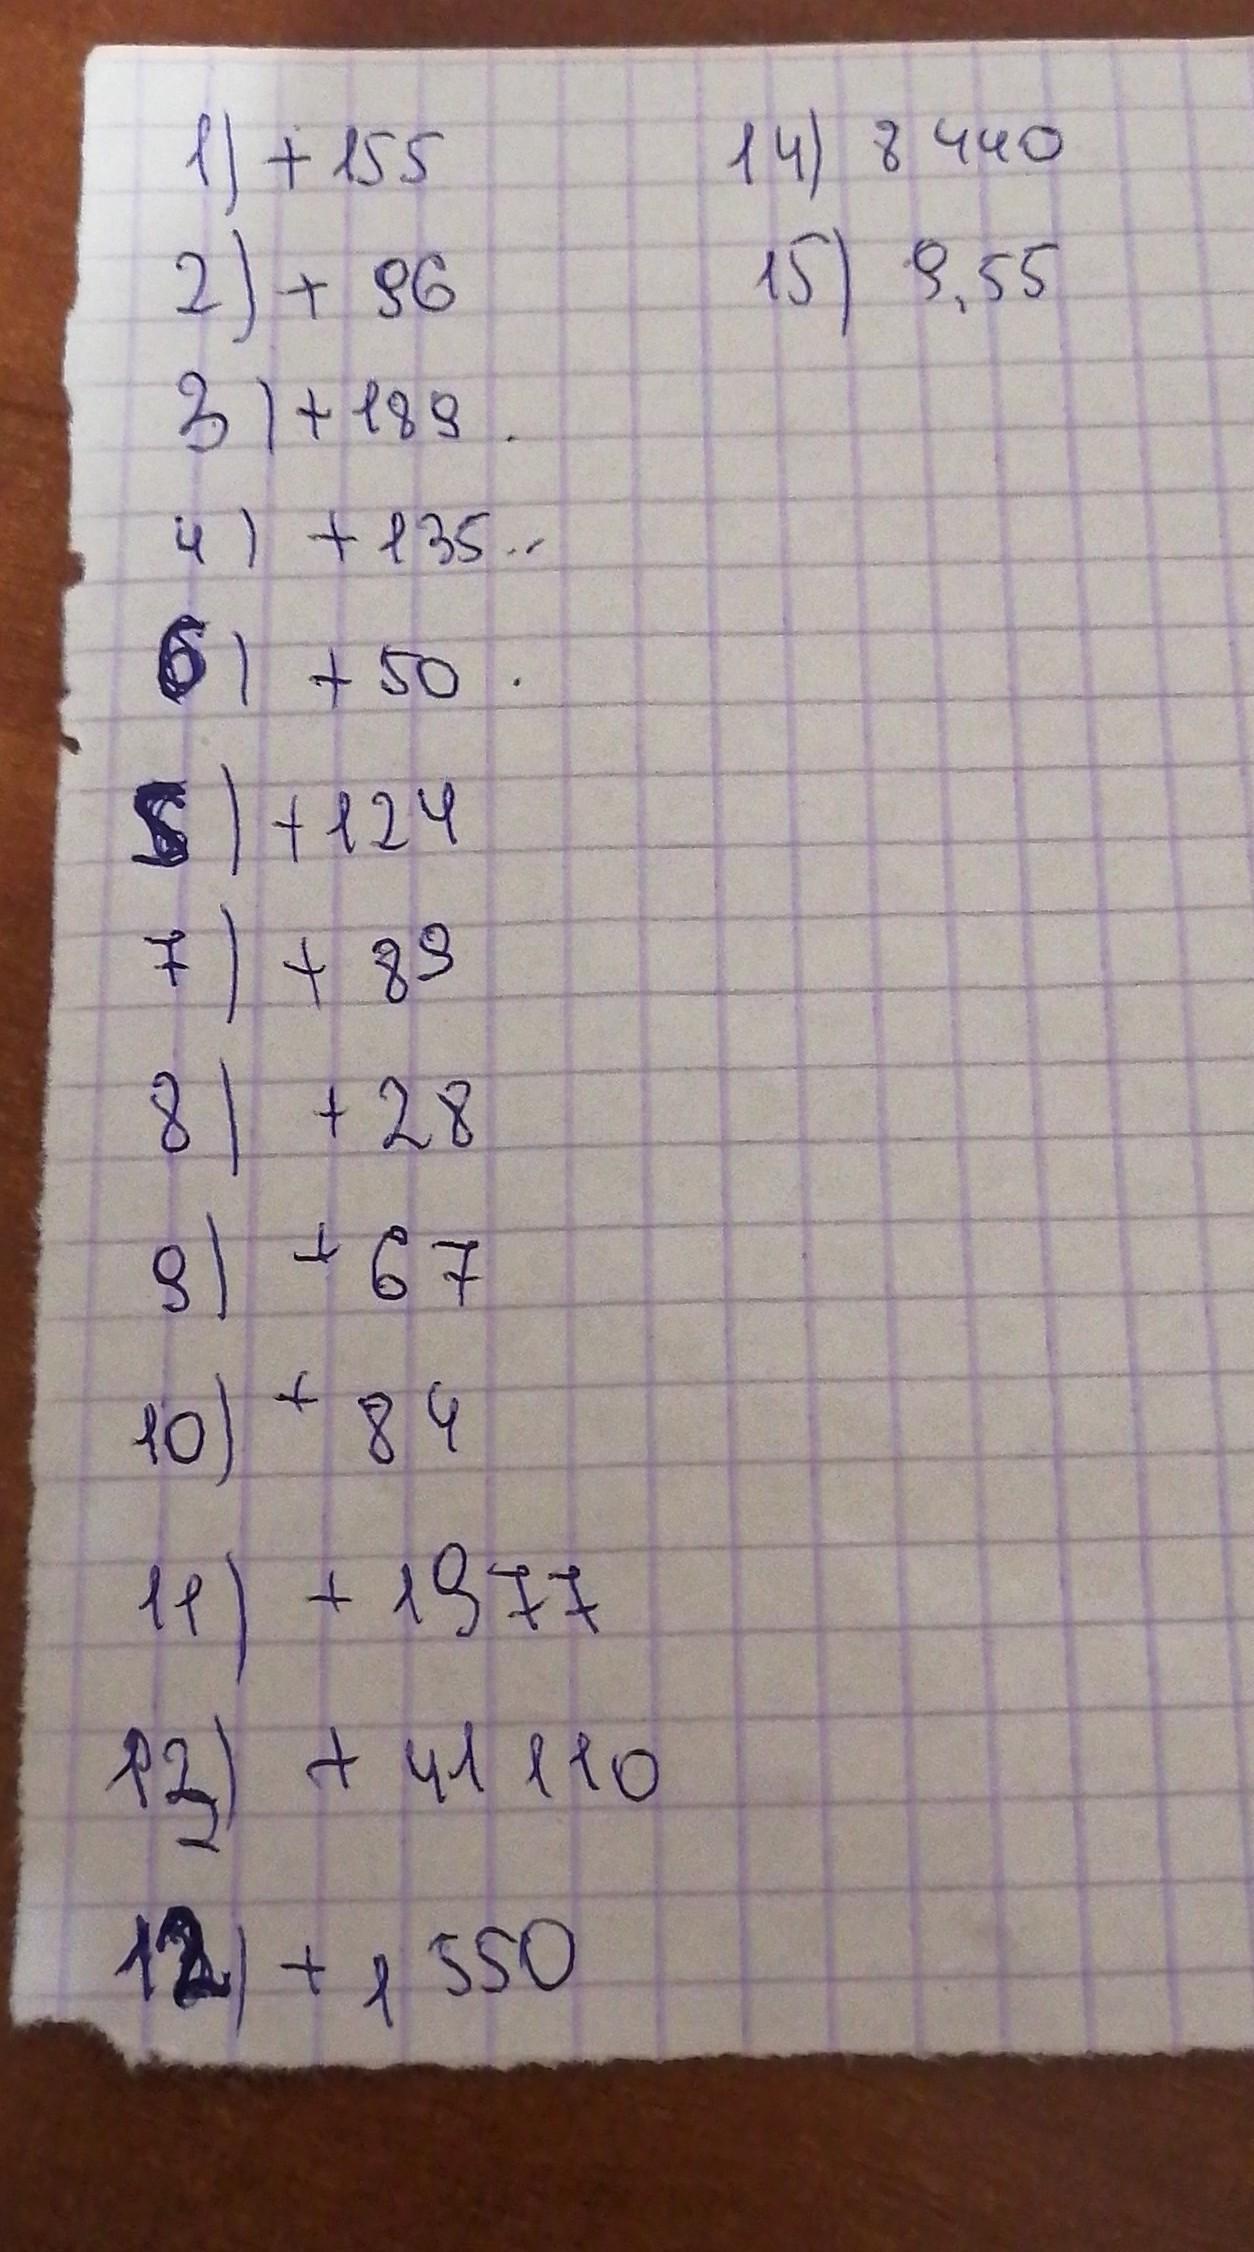 1) + 155
2) + 96
3) + 189.
4) + 135..
6) + 50.
5) + 124
7) + 89
8) + 28
9) + 67
10) + 84
11) + 1977
13) + 41 110
12) + 1550
14) 8 440
15) 9,55